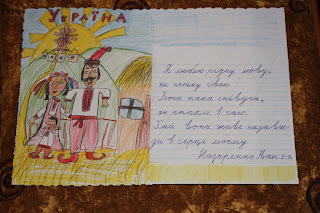 УКРАЇНА
Я люблю рідну мову,
як неньку свою.
Вона така співуча,
як пташки в гаю.
Хай вона живе назавж-
ди в серці моєму.
Назаренко Іван 2-а